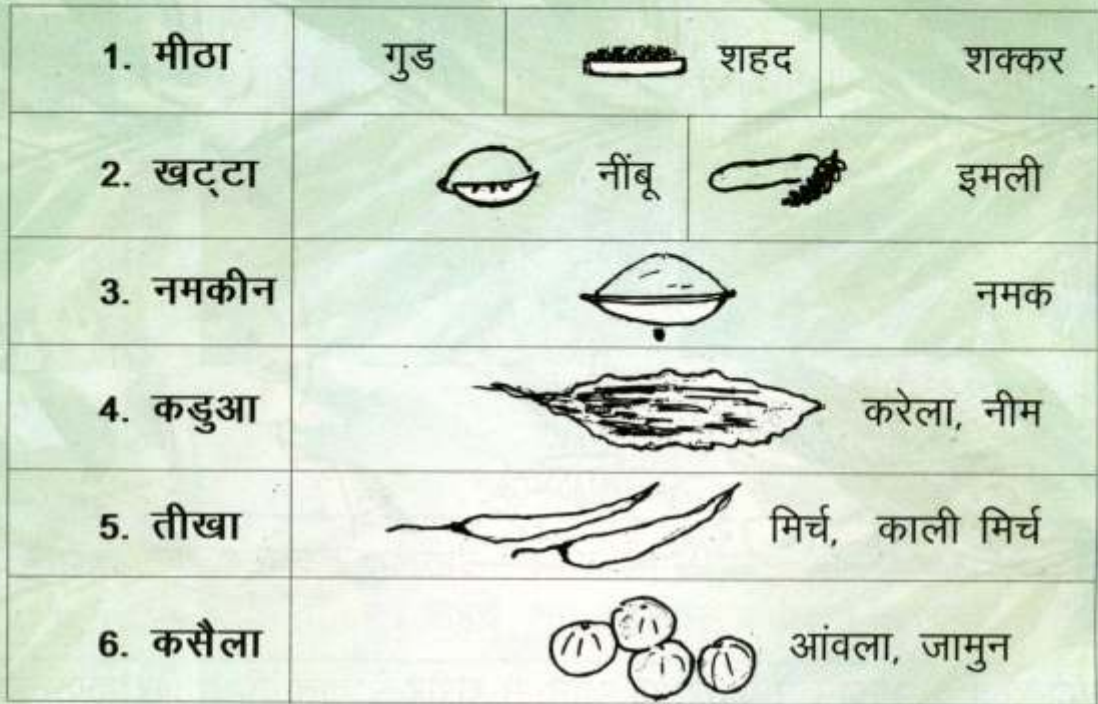 1. मीठा गुड शहद शक्कर
2. खट्टा नींबू इमली
3. नमकीन नमक
4. कडुआ करेला, नीम
5. तीखा मिर्च, काली मिर्च
6. कसैला आंवला, जामुन